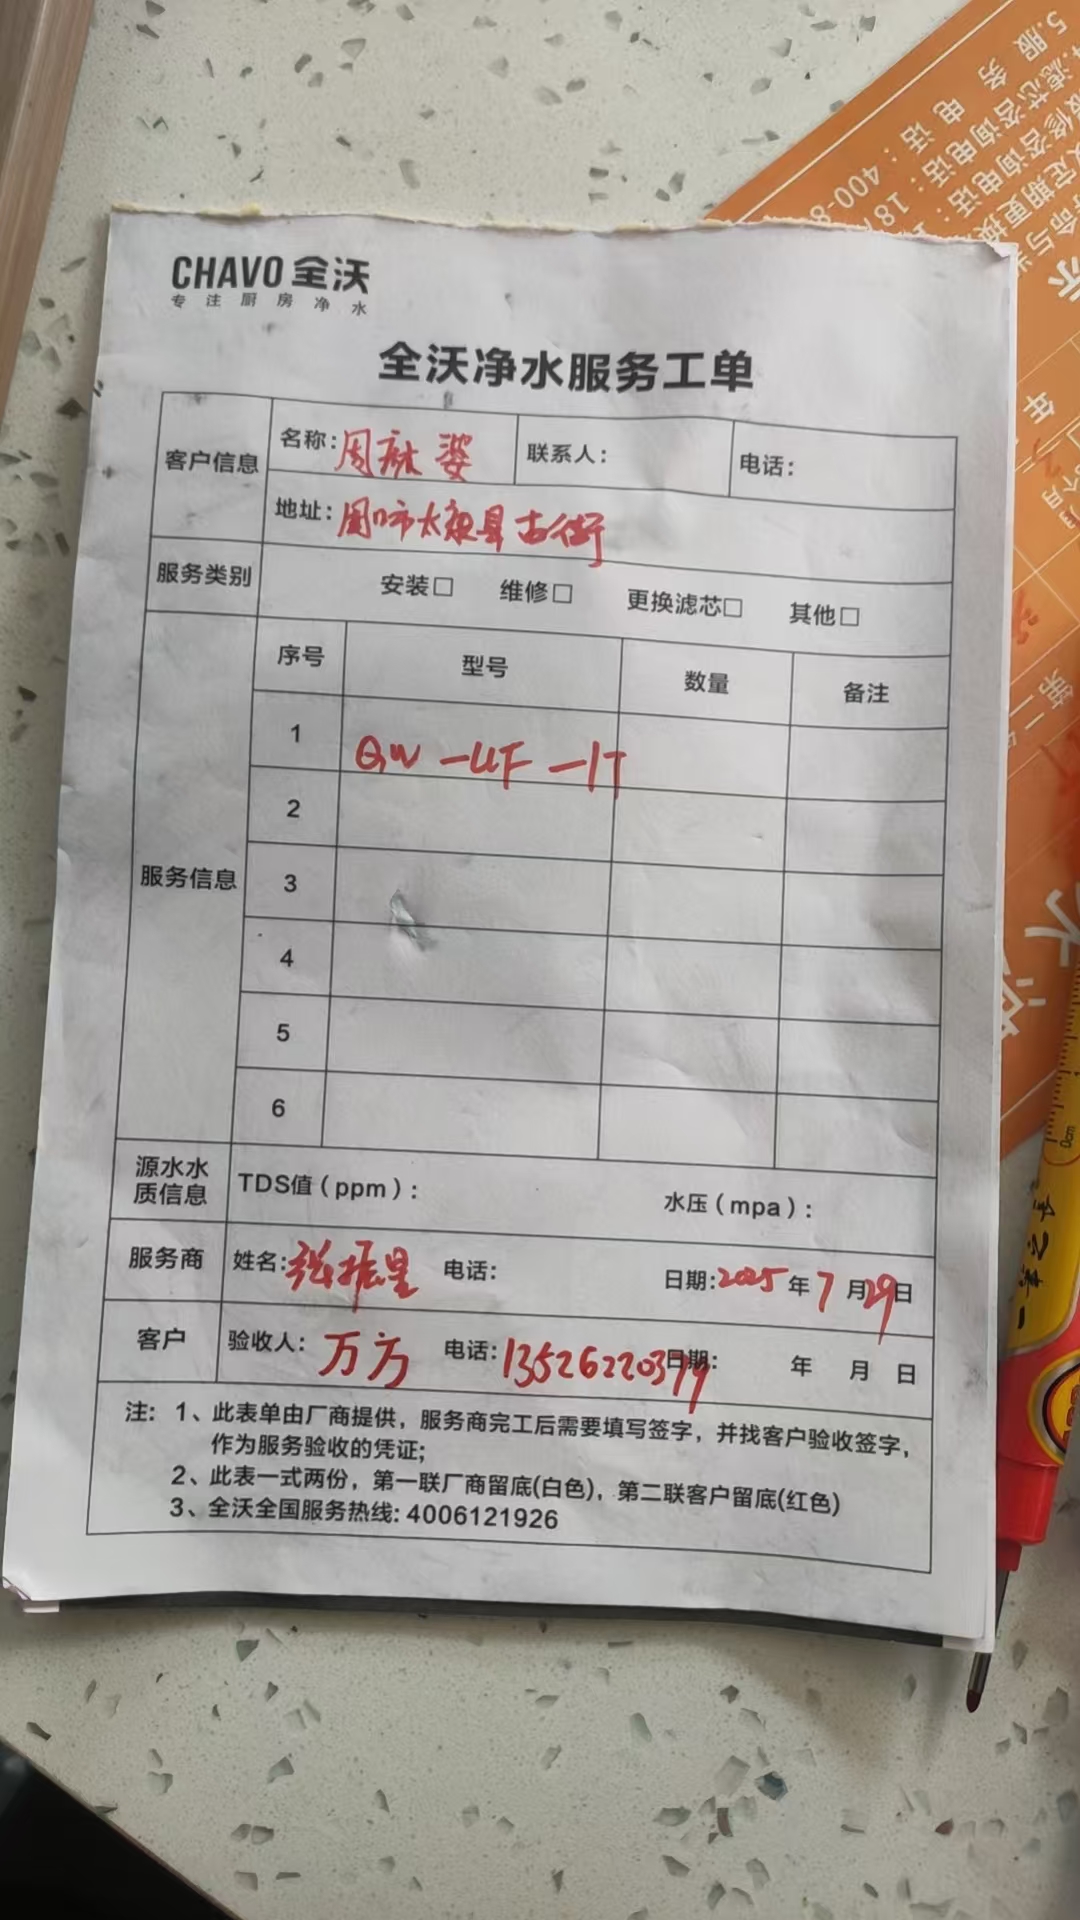 CHAVO 全沃
专注厨房净水
全沃净水服务工单
客户信息
名称：周麻婆
联系人：
电话：
地址：周口市太康县古街
服务类别
安装□ 维修□ 更换滤芯□ 其他□
服务信息
序号 型号 数量 备注
1 QW-UF-1T
2
3
4
5
6
源水水质信息
TDS值（ppm）： 水压（mpa）：
服务商 姓名：张振星 电话： 日期：2025年7月29日
客户 验收人：万方 电话：13526220379 日期： 年 月 日
注：1、此表单由厂商提供，服务商完工后需要填写签字，并找客户验收签字，
作为服务验收的凭证；
2、此表一式两份，第一联厂商留底(白色)，第二联客户留底(红色)
3、全沃全国服务热线：4006121926
5.服务电话：400-8
滤芯咨询电话：18
修咨询电话：1
定期更换
年
第二
0cm